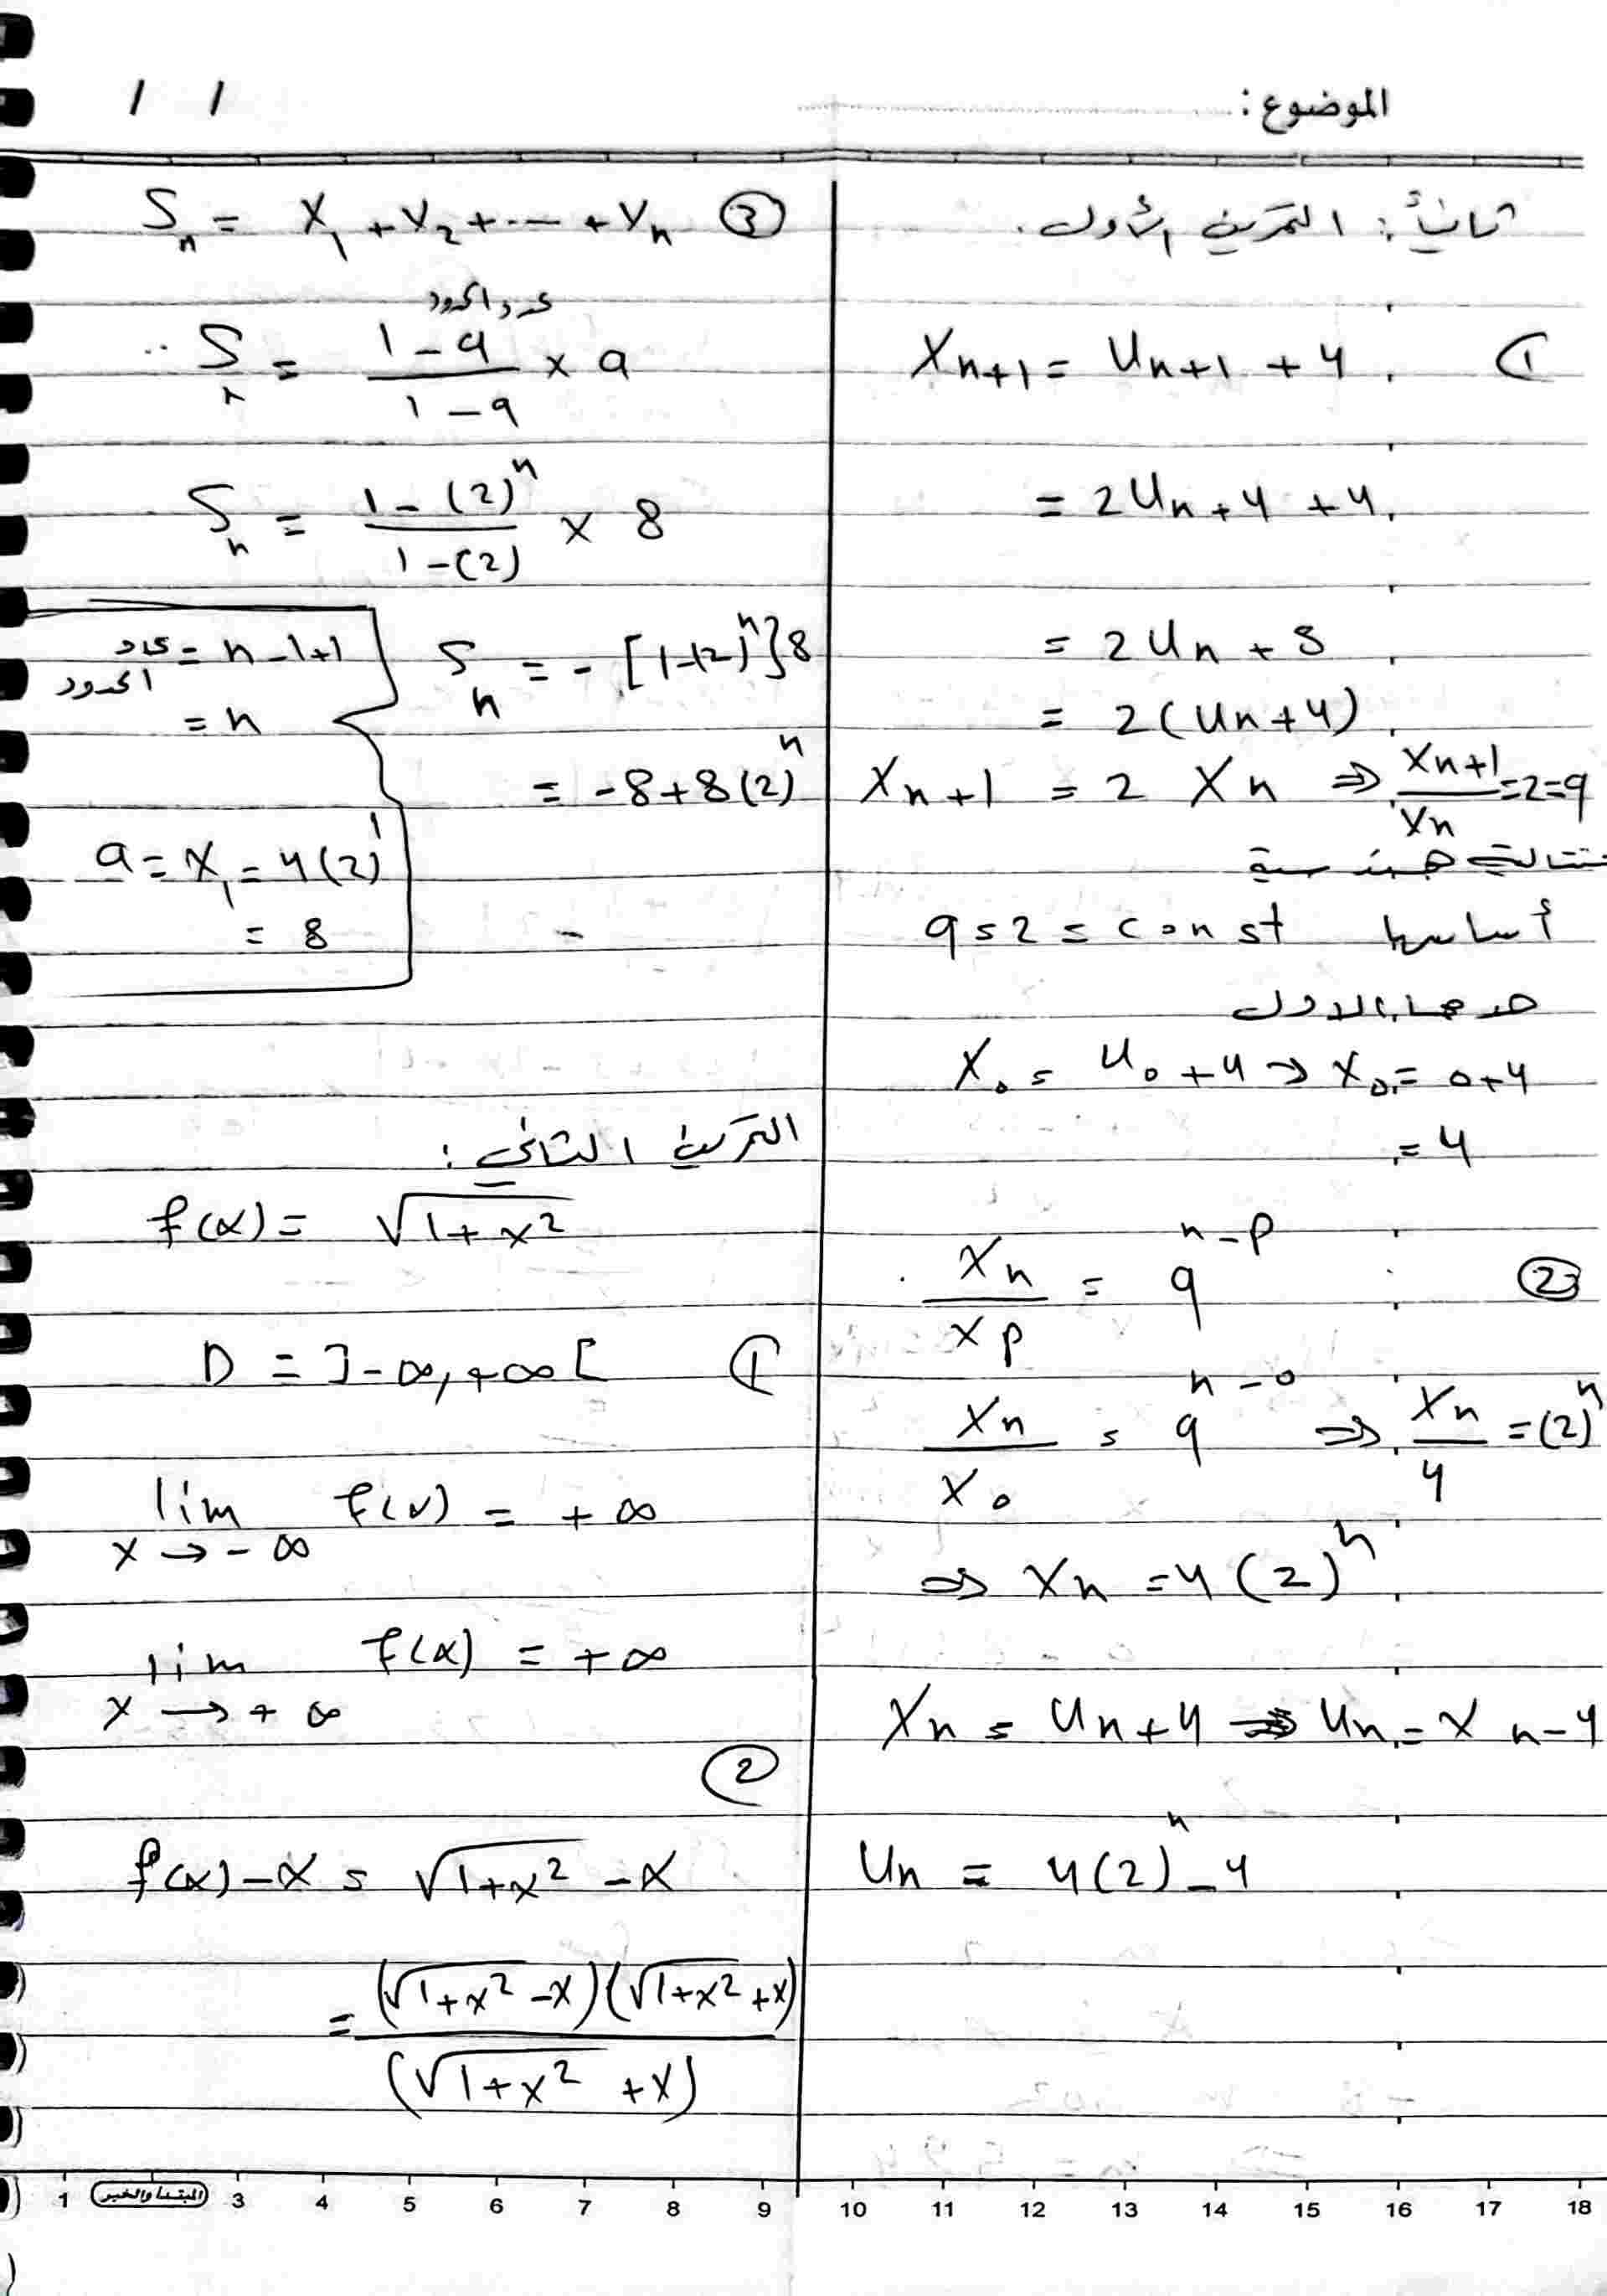 الموضوع:
/ /
ثانياً: التمرين الأول.
1
Xn+1 = Un+1 + 4
= 2Un + 4 + 4
= 2Un + 8
= 2(Un+4)
Xn+1 = 2 Xn ⇒ Xn+1/Xn = 2 = q
متتالية هندسية
أساسها q = 2 = const
حدها الاول
X0 = U0 + 4 → X0 = 0+4
= 4
2
Xn/Xp = q^(n-p)
Xn/X0 = q^(n-0) ⇒ Xn/4 = (2)^n
⇒ Xn = 4(2)^n
Xn = Un+4 ⇒ Un = Xn-4
Un = 4(2)^n - 4
3 Sn = X1 + X2 + ... + Xn
Sn = (1 - q^(عدد الحدود))/(1 - q) × a
Sn = (1 - (2)^n)/(1 - (2)) × 8
Sn = -[1-(2)^n]8
= -8+8(2)^n
عدد الحدود = n-1+1
= n
a = X1 = 4(2)^1
= 8
التمرين الثاني:
f(x) = √(1+x²)
1 D = ]-∞, +∞[
lim f(x) = +∞
x → -∞
lim f(x) = +∞
x → +∞
2
f(x) - x = √(1+x²) - x
= (√(1+x²) - x)(√(1+x²) + x)
/(√(1+x²) + x)
1 المبتدأ والخبر 3 4 5 6 7 8 9 10 11 12 13 14 15 16 17 18